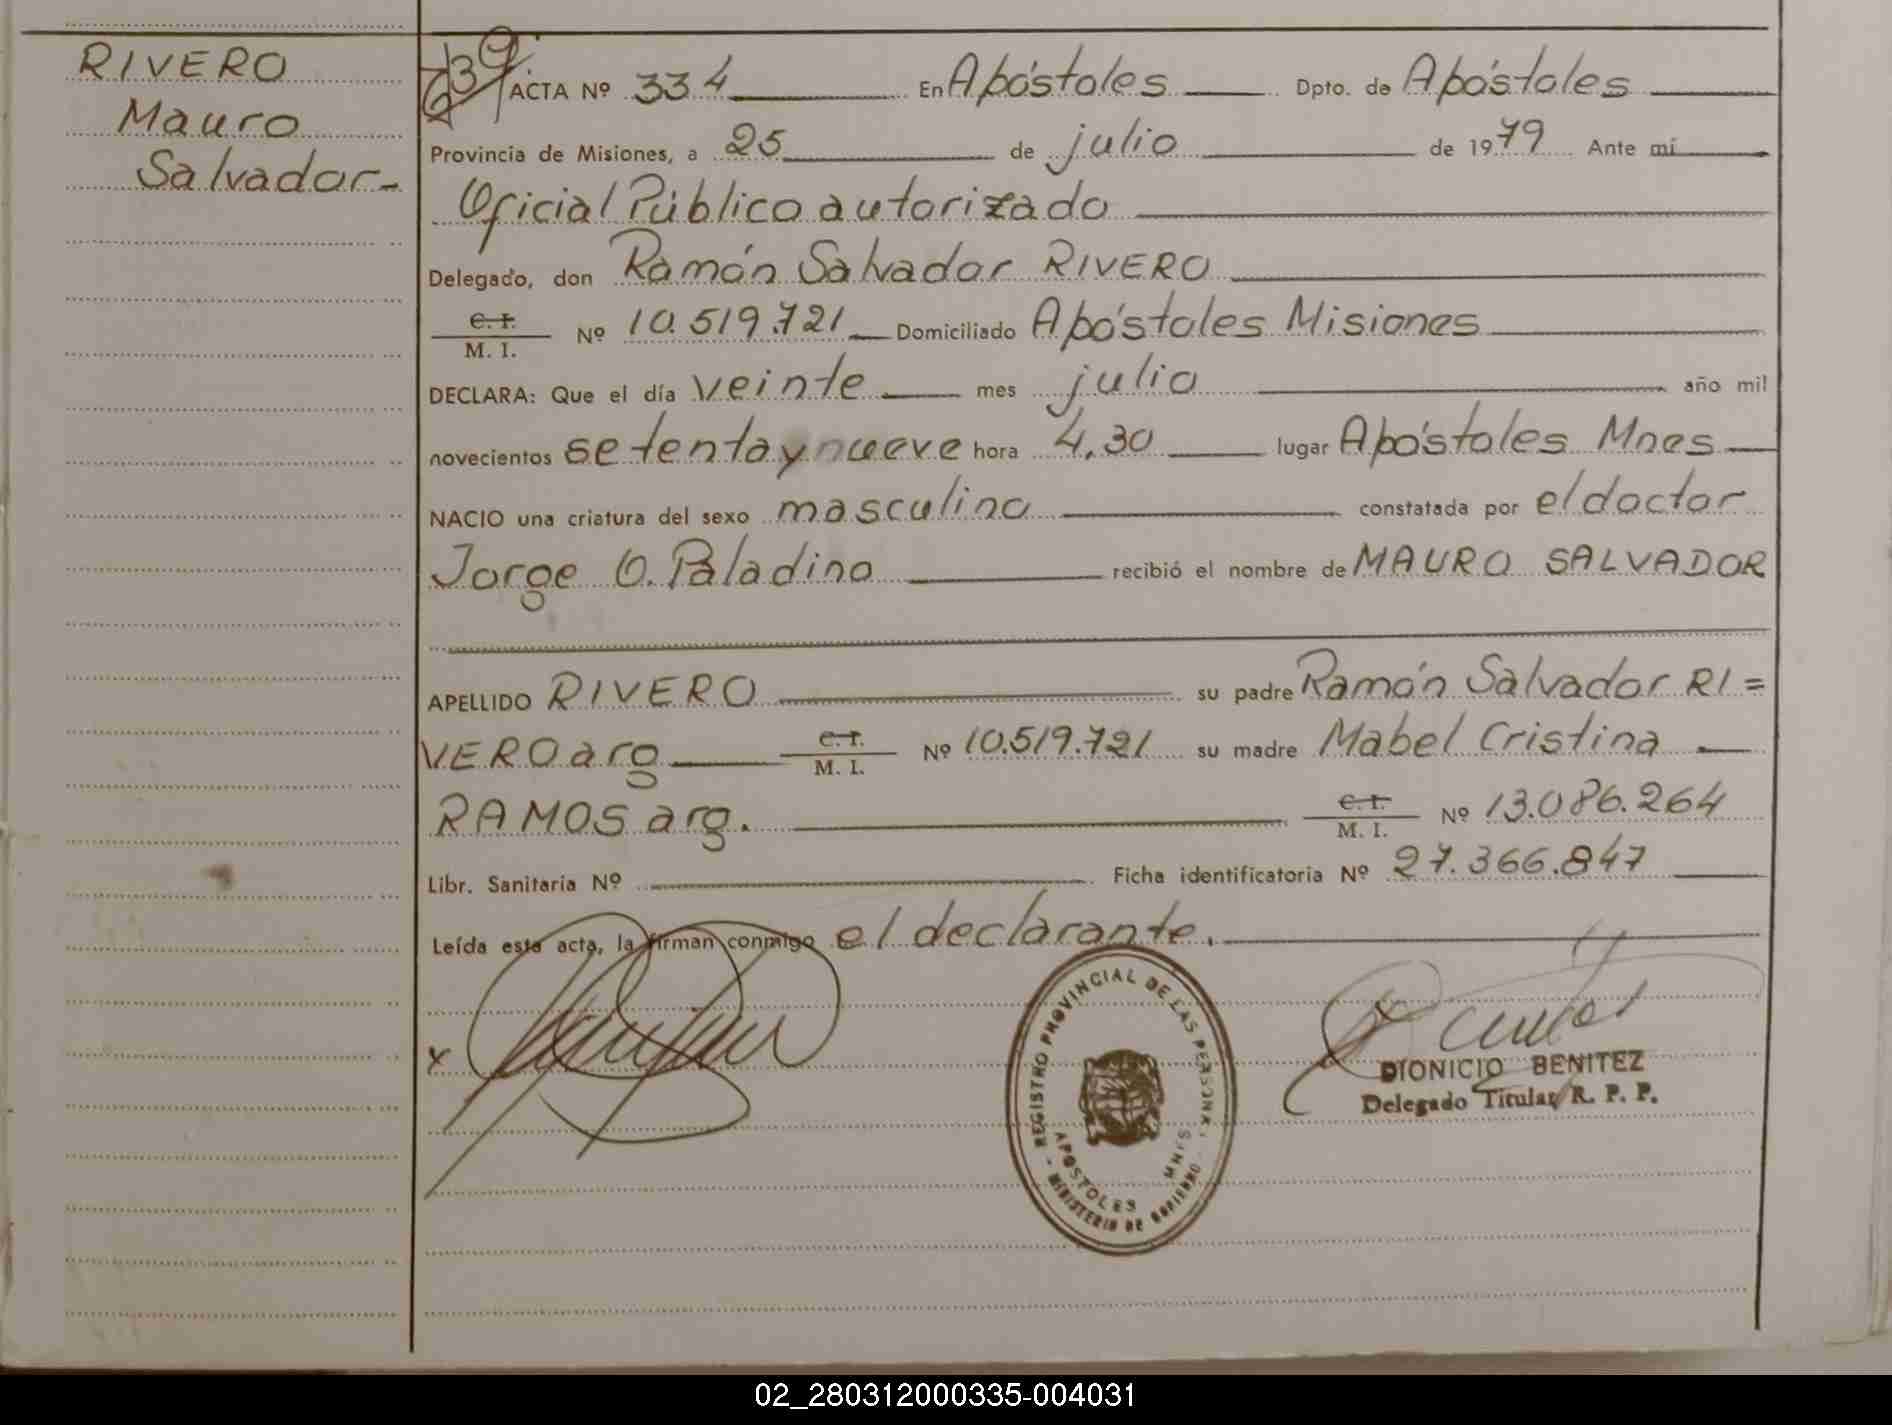 RIVERO
Mauro
Salvador-
ACTA Nº 334 En Apóstoles Dpto. de Apóstoles
Provincia de Misiones, a 25 de julio de 1979 Ante mí
Oficial Público autorizado
Delegado, don Ramón Salvador RIVERO
C. I.
M. I. Nº 10.519.721 Domiciliado Apóstoles Misiones
DECLARA: Que el día veinte mes julio año mil
novecientos setenta y nueve hora 4,30 lugar Apóstoles Mnes
NACIO una criatura del sexo masculino constatada por el doctor
Jorge O. Paladino recibió el nombre de MAURO SALVADOR
APELLIDO RIVERO su padre Ramón Salvador RI=
VERO arg C. I. M. I. Nº 10.519.721 su madre Mabel Cristina
RAMOS arg. C. I. M. I. Nº 13.086.264
Libr. Sanitaria Nº Ficha identificatoria Nº 27.366.847
Leída esta acta, la firman conmigo el declarante.
x
REGISTRO PROVINCIAL DE LAS PERSONAS
APOSTOLES MNES
MINISTERIO DE GOBIERNO
DIONICIO BENITEZ
Delegado Titular R. P. P.
02_280312000335-004031